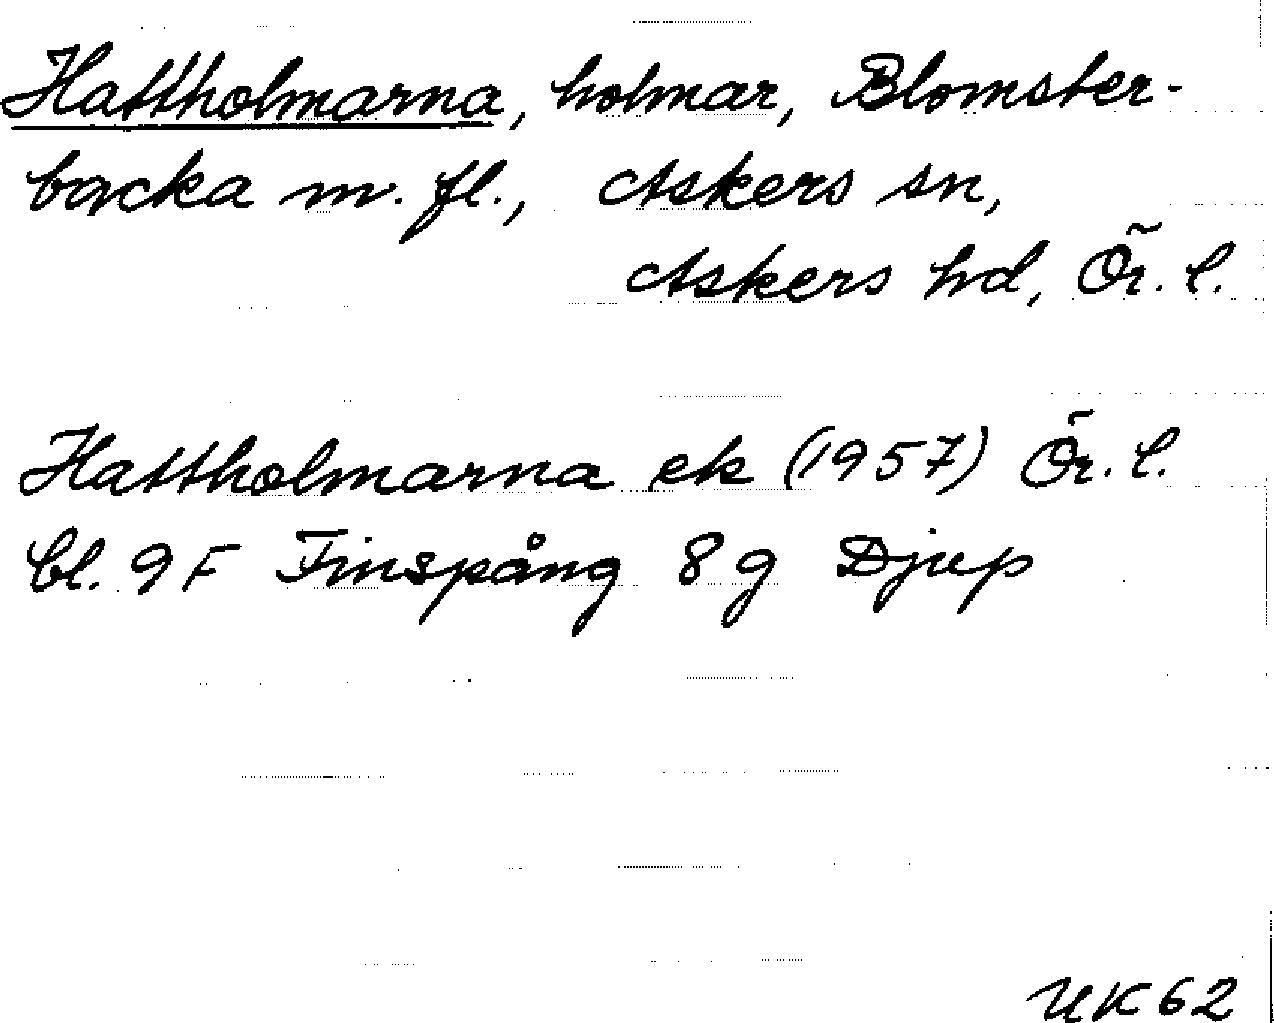 Hattholmarna, holmar, Blomster-
backa m. fl., Askers sn,
Askers hd, Ör. l.
Hattholmarna ek (1957) Ör. l.
bl. 9 F Finspång 8 g Djup
UK 62